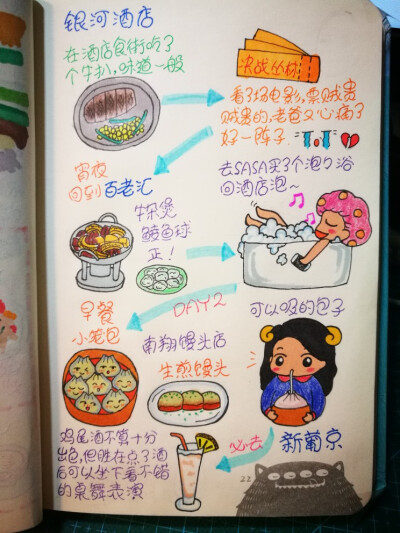 银河酒店
在酒店食街吃了
个牛扒,味道一般
决战丛林
看了场电影,票贼贵
贼贵的,老爸又心痛了
好一阵子
宵夜
回到百老汇
牛杂煲
鲮鱼球
正!
去SASA买了个泡泡浴
回酒店泡~
DAY2
早餐
小笼包
南翔馒头店
生煎馒头
可以吸的包子
鸡尾酒不算十分
出色,但胜在点了酒
后可以坐下看不错
的桌舞表演
必去
新葡京
22